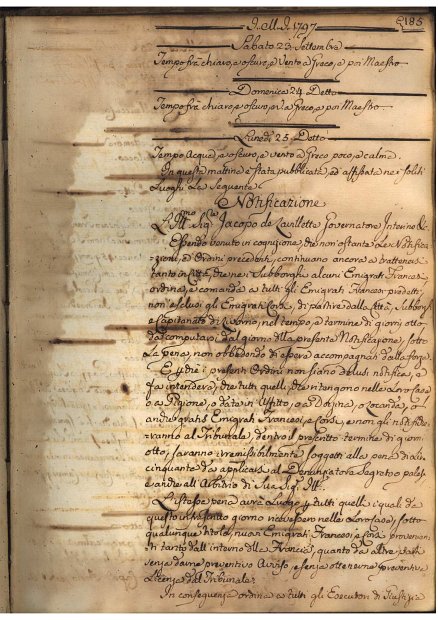 185
1797
Sabato 23 Settembre
Tempo frà chiaro, e oscuro, e Vento a Greco, e poi Maestro
Domenica 24 Detto
Tempo frà chiaro, e oscuro, Greco, e poi Maestro
Lunedì 25 Detto
Tempo Acqua, e oscuro, e vento a Greco poco, e calma.
In questa mattina è stata pubblicata ed affissata nei soliti
Luoghi La Seguente
Notificazione
Jacopo de Governatore Interino
Essendo venuto in cognizione, che non ostante Le Notifica-
zioni, ed Ordini precedenti, continuano ancora a trattenersi
tanto in Città, che nei Subborghi alcuni Emigrati Francesi
ordina, e comanda a tutti gli Emigrati Francesi predetti,
non esclusi gli Emigrati Corsi, di partire dalla Città, Subborghi
e Capitanato di Livorno, nel tempo, e termine di giorni otto
da computarsi dal giorno della presente Notificazione, sotto
La pena, non obbedendo di essere accompagnati dalla forza.
E perchè i presenti Ordini non siano delusi notifica, e
fa intendere, che tutti quelli, che ritengono nelle Loro Case
o a Pigione, o Data in Affitto, o a Dozzina, o Locanda, o
anche gratis Emigrati Francesi, e Corsi, e non gli notifiche-
ranno al Tribunale, dentro il prescritto termine di giorni
otto, saranno irremissibilmente soggetti alla pena di
cinquanta da applicarsi al Denunziatore Segreto, o palese
e anche all'Arbitrio di Sua Sig.
L'istessa pena avrà Luogo per tutti quelli i quali da
questo infrascritto giorno ricevessero nelle Loro Case, sotto
qualunque titolo, nuovi Emigrati Francesi, e Corsi provenien-
ti tanto dall'interno della Francia, quanto da altre parti
senza darne preventivo Avviso, e senza ottenerne preventiva
Licenza dal Tribunale.
In conseguenza ordina a tutti gli Esecutori di Giustizia